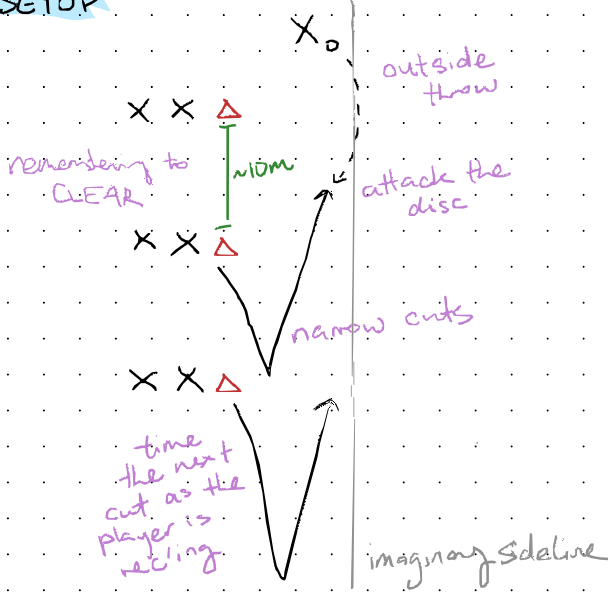 SETUP
outside
throw
remembering to
CLEAR
~10m
attack the
disc
narrow cuts
time
the next
cut as the
player is
imaginary sideline